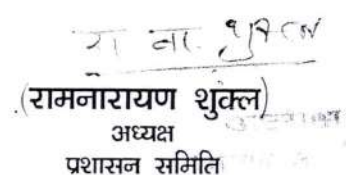 रा. ना. शुक्ल
(रामनारायण शुक्ल)
अध्यक्ष
प्रशासन समिति